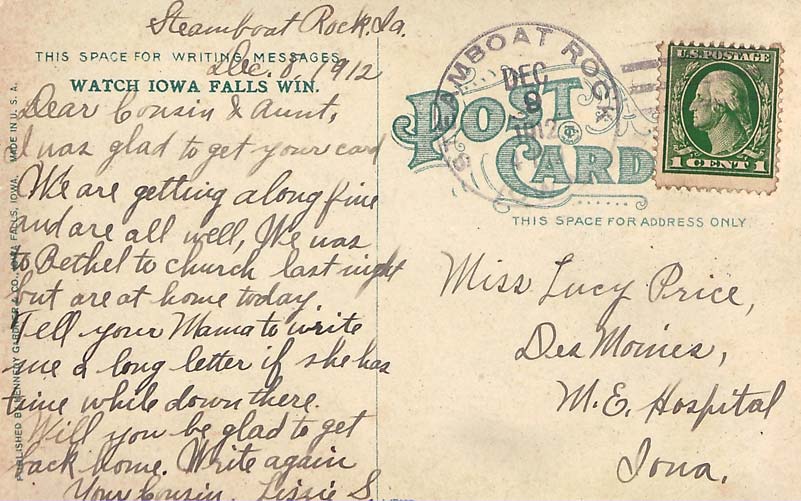 Steamboat Rock, Ia.
THIS SPACE FOR WRITING MESSAGES
Dec. 8, 1912
WATCH IOWA FALLS WIN.
Dear Cousin & Aunt,
I was glad to get your card
We are getting along fine
and are all well, We was
to Bethel to church last night
but are at home today.
Tell your Mama to write
me a long letter if she has
time while down there.
Will you be glad to get
back home. Write again
Your Cousin, Lizzie S.
PUBLISHED BY KENNEDY GARDNER & CO., IOWA FALLS, IOWA. MADE IN U. S. A.
POST CARD
STEAMBOAT ROCK
DEC
9
1912
U.S. POSTAGE
1 CENT 1
THIS SPACE FOR ADDRESS ONLY
Miss Lucy Price,
Des Moines,
M.E. Hospital
Iowa.